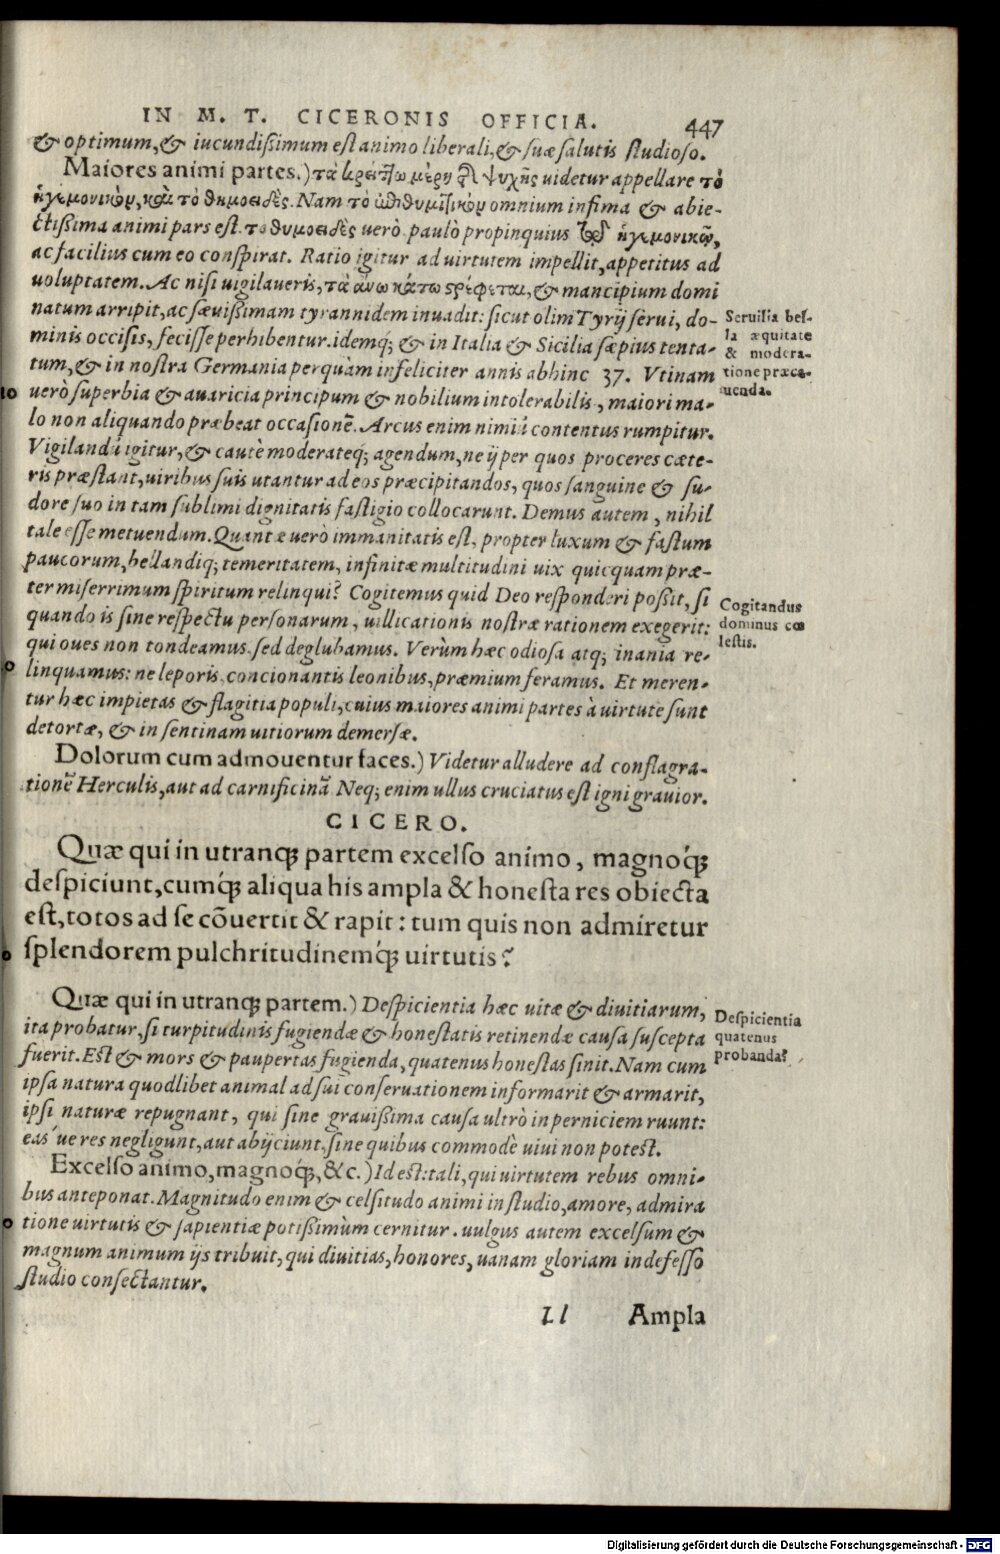 IN M. T. CICERONIS OFFICIA. 447
& optimum, & iucundißimum est animo liberali, & suæ salutis studioso.
Maiores animi partes.) τὰ κρείττω μέρη τῆς ψυχῆς uidetur appellare τὸ
ἡγεμονικὸν, καὶ τὸ θυμοειδὲς. Nam τὸ ἐπιθυμητικὸν omnium infima & abie-
ctißima animi pars est. το θυμοειδὲς uerò paulò propinquius τῷ ἡγεμονικῷ,
ac facilius cum eo conspirat. Ratio igitur ad uirtutem impellit, appetitus ad
uoluptatem. Ac nisi uigilaueris, τὰ ἄνω κάτω στρέφεται, & mancipium domi
natum arripit, ac sæuißimam tyrannidem inuadit: sicut olim Tyrij serui, do-
minis occisis, fecisse perhibentur. idemq; & in Italia & Sicilia sæpius tenta-
tum, & in nostra Germania perquàm infeliciter annis abhinc 37. Vtinam
Seruilia bel-
la æquitate
& modera-
tione præca-
uenda.
10
uerò superbia & auaricia principum & nobilium intolerabilis, maiori ma-
lo non aliquando præbeat occasionẽ. Arcus enim nimiũ contentus rumpitur.
Vigilandũ igitur, & cautè moderateq; agendum, ne ij per quos proceres cæte-
ris præstant, uiribus suis utantur ad eos præcipitandos, quos sanguine & su-
dore suo in tam sublimi dignitatis fastigio collocarunt. Demus autem, nihil
tale esse metuendum. Quantæ uerò immanitatis est, propter luxum & fastum
paucorum, bellandiq; temeritatem, infinitæ multitudini uix quicquam præ-
ter miserrimum spiritum relinqui? Cogitemus quid Deo responderi poßit, si
quando is sine respectu personarum, uillicationis nostræ rationem exegerit:
qui oues non tondeamus. sed deglubamus. Verùm hæc odiosa atq; inania re-
Cogitandus
dominus cœ
lestis.
linquamus: ne leporis concionantis leonibus, præmium feramus. Et meren-
tur hæc impietas & flagitia populi, cuius maiores animi partes à uirtute sunt
detortæ, & in sentinam uitiorum demersæ.
Dolorum cum admouentur faces.) Videtur alludere ad conflagra-
tionẽ Herculis, aut ad carnificinã Neq; enim ullus cruciatus est igni grauior.
CICERO.
Quæ qui in utranq; partem excelso animo, magnoq́;
despiciunt, cumq́; aliqua his ampla & honesta res obiecta
est, totos ad se cõuertit & rapit: tum quis non admiretur
splendorem pulchritudinemq́; uirtutis?
Quæ qui in utranq; partem.) Despicientia hæc uitæ & diuitiarum,
ita probatur, si turpitudinis fugiendæ & honestatis retinendæ causa suscepta
fuerit. Est & mors & paupertas fugienda, quatenus honestas sinit. Nam cum
Despicientia
quatenus
probanda?
ipsa natura quodlibet animal ad sui conseruationem informarit & armarit,
ipsi naturæ repugnant, qui sine grauißima causa ultrò in perniciem ruunt:
eas'ue res negligunt, aut abijciunt, sine quibus commodè uiui non potest.
Excelso animo, magnoq́;, &c.) Id est: tali, qui uirtutem rebus omni-
bus anteponat. Magnitudo enim & celsitudo animi in studio, amore, admira
tione uirtutis & sapientiæ potißimùm cernitur. uulgus autem excelsum &
magnum animum ijs tribuit, qui diuitias, honores, uanam gloriam indefesso
studio consectantur.
Ll Ampla
Digitalisierung gefördert durch die Deutsche Forschungsgemeinschaft - DFG